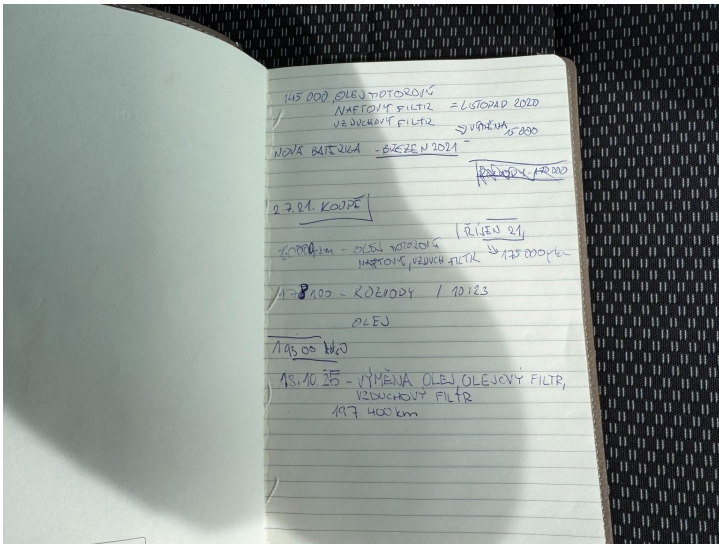 145 000, OLEJ MOTOROVÝ
NAFTOVÝ FILTR = LISTOPAD 2020
VZDUCHOVÝ FILTR
⇒ VÝMĚNA 15 000
NOVÁ BATERKA - BŘEZEN 2021
ROZVODY - 172 000
2.7.21. KOUPĚ
ŘÍJEN 21,
OLEJ MOTOROVÝ
NAFTOVÝ, VZDUCH FILTR ⇒ 175 000
178 100 - ROZVODY / 10/23
OLEJ
18.10.25 - VÝMĚNA OLEJ, OLEJOVÝ FILTR,
VZDUCHOVÝ FILTR
197 400 km